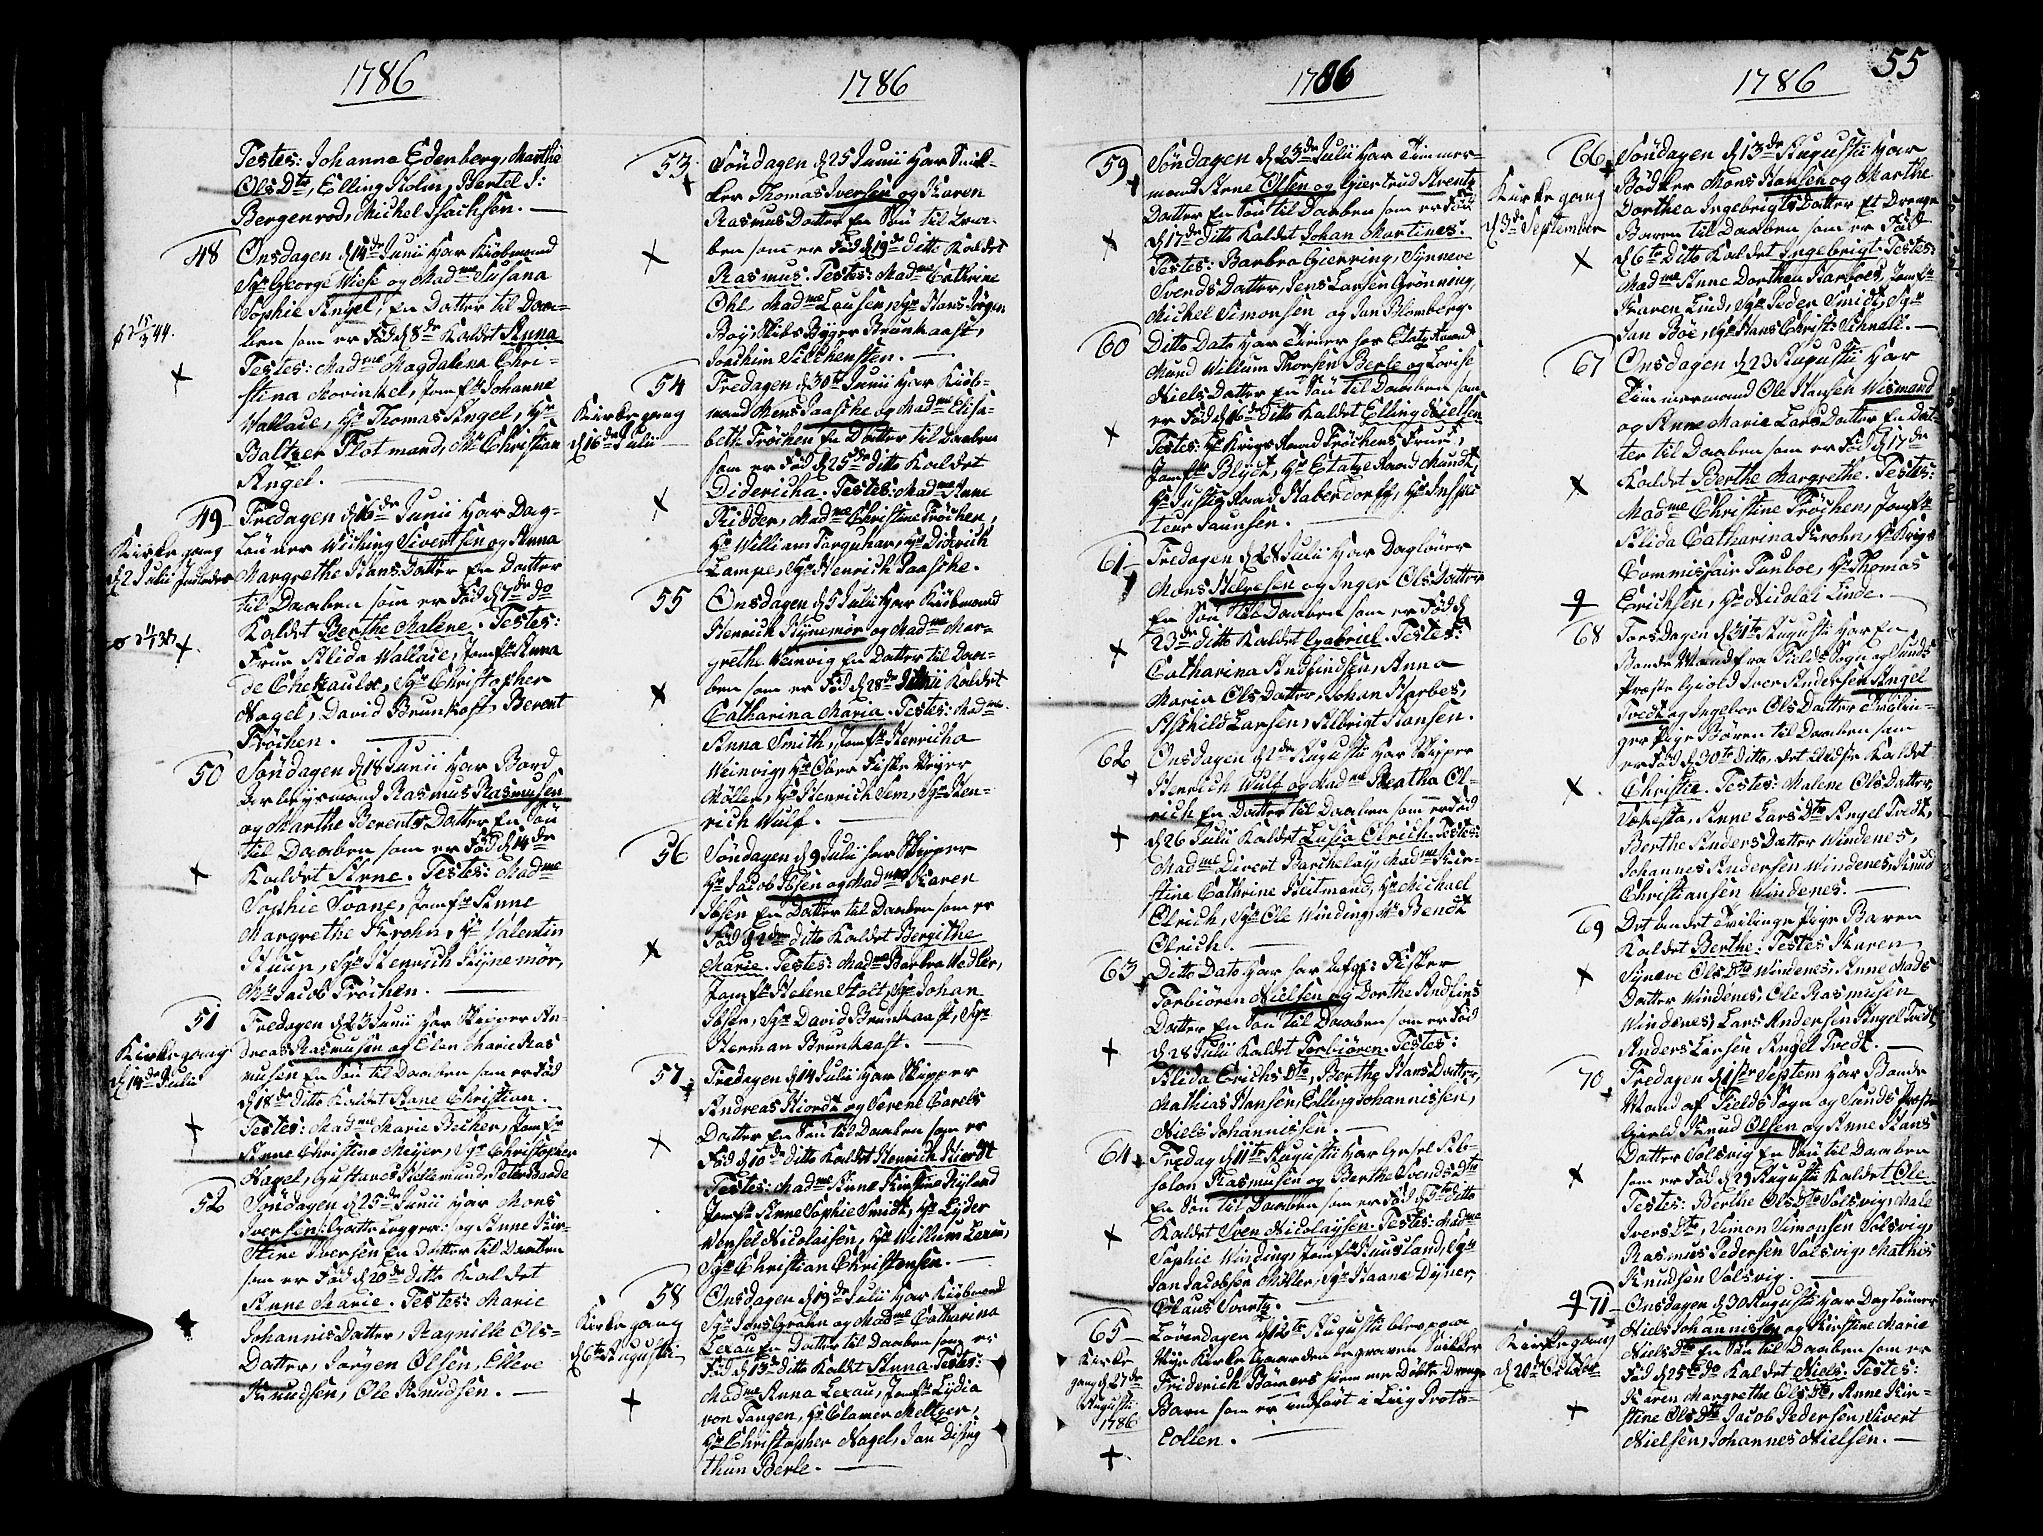 1786
Testes: Johanna Edenberg, Marthe
Olsdtr, Elling Holm, Bertel J:
Bergenrod, Michel Isachsen.
48
Onsdagen d 14de Junii har Kiöbmand
Sr George Wiese og Madme Susana
Sophie Angel, En Datter til Daa-
ben som er Föd d 8de Kaldet Anna
Testes: Madme Magdalena Chri-
stina Morinkel, Jomfr Johanne
Wallace, Hr Thomas Angel, Hr
Baltzer Flotmand, Mr Christian
Angel.
49
Kirkegang
d 2 Julii
Fredagen d 16de Junii har Dag-
Löner Wiching Sivertsen og Anna
Margrethe Hans Datter En Datter
til Daaben som er Föd d 7de do
Kaldet Berthe Malene. Testes:
Frue Alida Wallace, Jomfr Anna
de Chezaulx, Sr Christopher
Nagel, David Brunkost, Berent
Fröchen.
50
Söndagen d 18 Junii har Bord
Rasmus Rasmusen
og Marthe Berents Datter En Sön
til Daaben som er Föd d 14de
Kaldet Arne. Testes: Madme
Sophie Svane, Jomfr Anne
Margrethe Krohn, Hr Valentin
Kuun, Sr Henrich Kynemör,
Mr Jacob Fröchen.
51
Kirkegang
d 14de Julii
Fredagen d 23 Junii har An-
dreas Rasmusen og Elen Marie Ras
musen En Sön til Daaben som er Föd
d 18de ditto Kaldet Hans Christian.
Testes: Madme Marie Becher, Jomfr
Anne Christine Meyer, Sr Christopher
Nagel, Gustaves Peter Baade
52
Söndagen d 25de Junii har Mons
Iversen og Anne Kir-
stine Iversen En Datter til Daaben
som er Föd d 20de ditto Kaldet
Anne Marie. Testes: Marie
Johannis Datter, Ragnille Ols-
Datter, Jörgen Olsen, Elleve
Knudsen, Ole Knudsen.
1786
53
Söndagen d 25 Junii har Snik-
ker Thomas Iversen og Karen
Rasmus Datter En Sön til Daa-
ben som er Föd d 19de ditto Kaldet
Rasmus. Testes: Madme Cathrine
Ohl, Madme Leusen, Sr Hans Jörgen
Boy, Brunkaast,
Jochim Silchenstsen.
54
Kirkegang
d 16de Julii
Fredagen d 30te Junii har Kiöb-
mand Mens Paasche og Madme Elisa-
beth Fröchen En Datter til Daaben
som er Föd d 25de ditto Kaldet
Didericha. Testes: Madme Anne
Ridder, Madme Christine Fröchen,
Hr William Farquhar, Hr Diderich
Lampe, Sr Henrich Paasche.
55
Onsdagen d 5 Julii har Kiöbmand
Henrich Kynemör og Madme Mar-
grethe Weinvig En Datter til Daa-
ben som er Föd d 28de Junii Kaldet
Catharina Maria. Testes: Madme
Anna Smith, Jomfr Henricha
Weinvig, Hr Ober Fiske Veyer
Möller, Hr Henrich Fem, Sr Hen-
rich Wulf.
56
Söndagen d 9 Julii har Skipper
Hr Jacob Ibsen og Madme Karen
Ibsen En Datter til Daaben som er
Föd d 2de ditto Kaldet Bergithe
Marie. Testes: Madme Barbra Wedler,
Jomfr Helene Holt, Sr Johan
Ibsen, Sr David Brunkaast, Sr
Herman Brunkaast.
57
Fredagen d 14 Julii har Skipper
Andreas Hiordt og Serene Carels
Datter En Sön til Daaben som er
Föd d 10de ditto Kaldet Henrich Hiordt
Testes: Madme Anne Kirstine Kyland
Jomfr Anne Sophie Smidt, Hr Lyder
Wensel Nicolaisen, Hr Willum Lexau,
Sr Christian Christensen.
58
Kirkegang
d 6te Augusti
Onsdagen d 19de Julii har Kiöbmand
Sr Jens Grahn og Madme Catharina
Lexau En Datter til Daaben som er
Föd d 13de ditto Kaldet Anna. Testes:
Madme Anna Lexau, Jomfr Lydia
von Tangen, Hr Clamer Meltzer,
Hr Christopher Nagel, Jan Dising
thun Berle.
1786
59
Söndagen d 23de Julii har Timmer-
mand Arne Olsen og Giertrud Arentz
Datter En Sön til Daaben som er Föd
d 17de ditto Kaldet Johan Martines.
Testes: Barbra Giering, Synneve
Svends Datter, Jens Larsen Grönning,
Michel Simonsen og Jan Blomberg.
60
Ditto Dato har Tiener hos Etatz Raad
Mund Willum Thorsen Berle og Lovise
Niels Datter En Sön til Daaben som
er Föd d 16de ditto Kaldet Elling Nielsen
Testes: Hr Krigs Raad Fröchens Frue,
Jomfr Blydt, Hr Etatze Raad Mundt,
Hr Justiz Raad Haberdorff, Hr Inspec
teur Taunsen.
61
Fredagen d 28 Julii har Daglöner
Mons Helgesen og Inger Ols Datter
En Sön til Daaben som er Föd d
23de ditto Kaldet Gabriel. Testes:
Catharina Andfindsen, Anna
Maria Ols Datter, Johan Harbes,
Aschild Larsen, Albrigt Hansen.
62
Onsdagen d 2de Augusti har Skipper
Henrich Wulf og Madme Agatha Ol-
rich En Datter til Daaben som er Föd
d 26 Julii Kaldet Lusia Olrich. Testes:
Madme Divert Barchelay, Madme Kir-
stine Cathrine Heitmand, Hr Michael
Olrich, Sr Ole Winding, Mr Bendt
Olrich.
63
Ditto Dato har Fisker
Torbiören Nielsen og Dorthe Andfins
Datter En Sön til Daaben som er Föd
d 28 Julii Kaldet Torbiören. Testes:
Alida Erichs Dtr, Berthe Hans Datter,
Mathias Hansen, Elling Johannissen,
Niels Johannissen.
64
Fredag d 11te Augustii har Gesel Ab-
solon Rasmusen og Berthe Svends Dtr
En Sön til Daaben som er Föd d 5te ditto
Kaldet Sven Nicolaysen. Testes: Madme
Sophie Winding, Jomfr Huusland, Sr
Jan Jacobsen Möller, Sr Haane Dyner,
Claus Svertz.
65
Kirke
gang d 27de
Augusti
1786
Löverdagen d 12te Augusti blev paa
Nye Kirke Gaarden begraven Snikker
Friderich Bömers hiemme Döbte Drenge
Barn som er indfört i Liig Proto-
collen.
55
1786
66
Kirkegang
d 3de September
Söndagen d 13de Augusti har
Bödker Mons Hansen og Marthe
Dorthea Ingebrigts Datter Et Drenge
Baren til Daaben som er Föd
d 6te ditto Kaldet Ingebrigt. Testes:
Madme Anne Dorthea Harboes, Jomfr
Karen Lind, Sr Peder Smidt, Sr
Jan Boe, Sr Hans Christ: Schnell.
67
Onsdagen d 23 Augustii har
Timmermand Ole Hansen Wismand
og Anne Marie Lars Datter En Dat-
ter til Daaben som er Föd d 17de
Kaldet Berthe Margrethe. Testes:
Madme Christine Fröchen, Jomfr
Alida Catharina Krohn, Hr Krigs
Commissair Tuxboe, Hr Thomas
Erichsen, Hr Nicolai Linde.
68
Torsdagen d 31te Augusti har En
Bonde Mand fra Fields Sogn og Sunds
Præste Giæld Iver Andersen Angel
Tvedt og Ingebor Ols Datter Tvilin-
ger Pige Bören til Daaben som
er Föd d 30te ditto, det Eldste Kaldet
Christie. Testes: Malene Ols Datter
Anne Lars Dtr Angel Tvedt,
Berthe Anders Datter Windenes,
Johannes Andersen Windenes, Knud
Christiansen Windenes.
69
Det andet Tvilinge Pige Baren
Kaldet Berthe. Testes Karen
Syneve Ols Dtr Windenes, Anne Mads
Datter Windenes, Ole Rasmusen
Windenes, Lars Andersen Angel Tvedt,
Anders Larsen Angel Tvedt.
70
Fredagen d 1ste Septem har Bonde
Mand af Fields Sogn og Sunds Præste
Gield Knud Olsen og Anne Hans
Datter Solsvig En Sön til Daaben
som er Föd d 29 Augusti Kaldet Ole
Testes: Berthe Ols Dtr Solsvig, Male
Ivers Dtr, Simon Simonsen Solsvig,
Rasmus Pedersen Solsvig, Mathis
Knudsen Solsvig.
71
Kirkegang
d 20de October
Onsdagen d 30 Augusti har Daglönner
Niels Johannissen og Kirstine Marie
Niels Dtr En Sön til Daaben som er
Föd d 25de do Kaldet Niels. Testes:
Karen Margrethe Ols Dtr, Anne Kir-
stine Ols Dtr, Jacob Pedersen, Sivert
Nielsen, Johannes Nielsen.